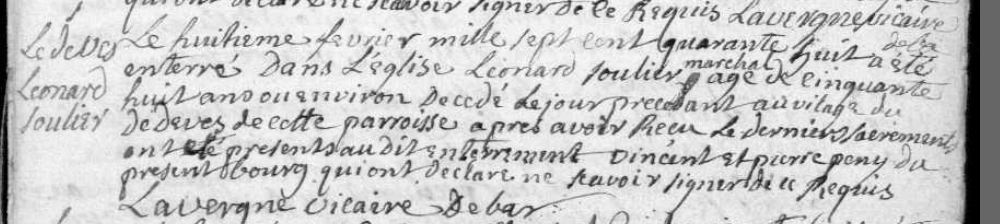 qui ont declaré ne scavoir signer de ce Requis Lavergne vicaire
de bar
Le deves
Leonard
soulier
Le huitieme fevrier mille sept cent quarante huit a eté
enterré Dans L'eglise Leonard soulier marchal agé de cinquante
huit ans ou environ Decedé Le jour precedant au vilage du
de deves de cette parroisse apres avoir Receu Le derniers sacrements
ont eté presents au dit enterrement vincent et pierre peny du
present bourg qui ont declaré ne scavoir signer de ce Requis
Lavergne vicaire De bar